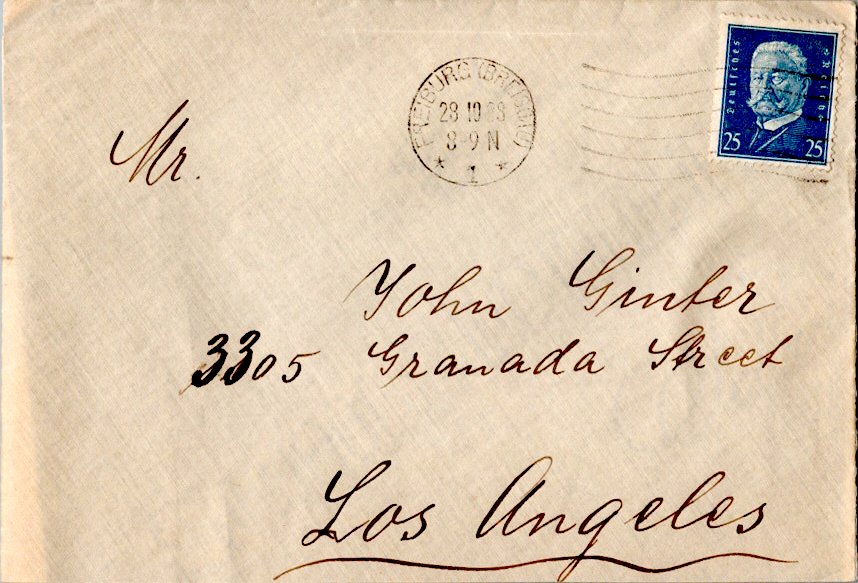 FREIBURG (BREISGAU)
28 10 28
8-9 N
* 1 *
Deutsches Reich
25 25
Mr.
John Ginter
3305 Granada Street
Los Angeles